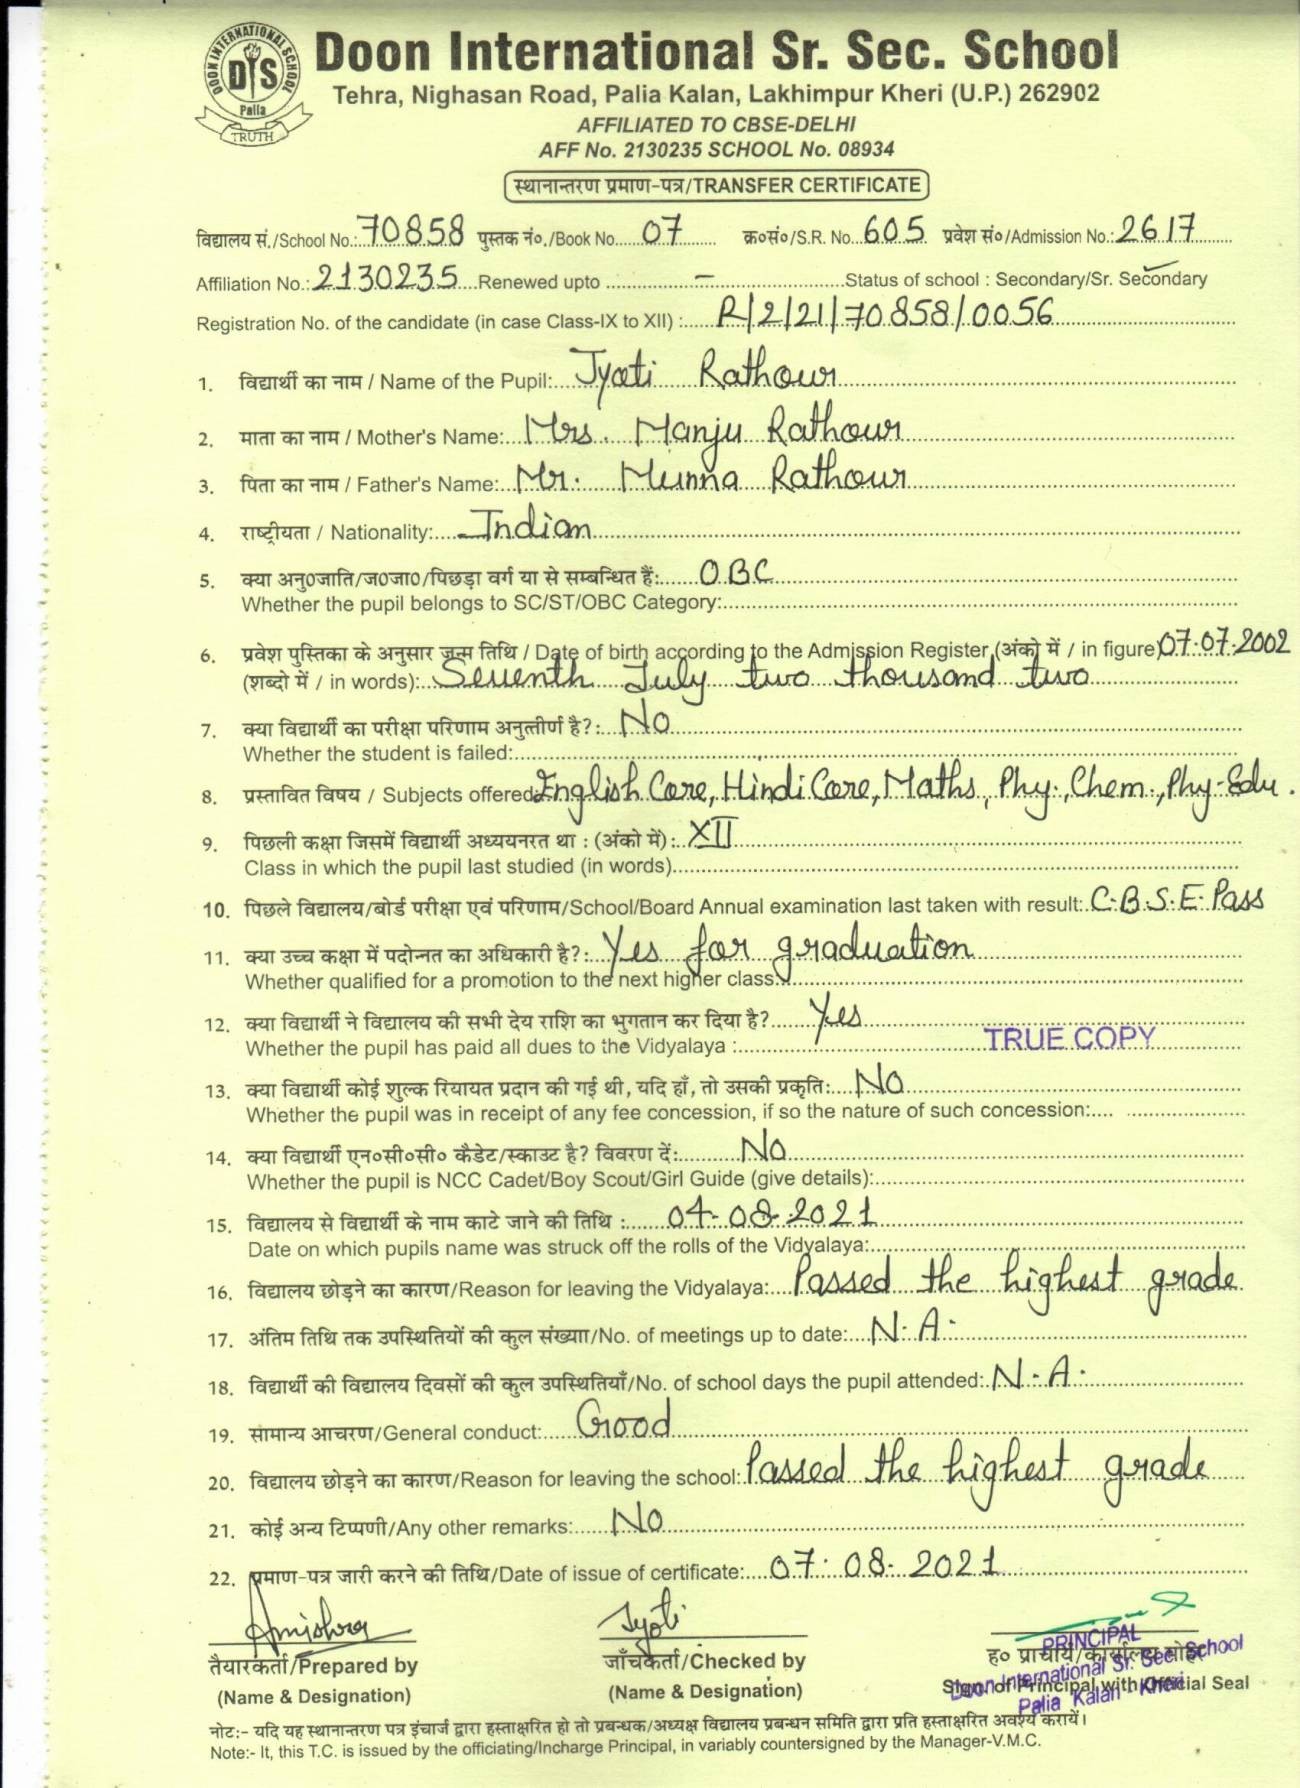 DOON INTERNATIONAL SCHOOL
DIS
Palia
TRUTH
Doon International Sr. Sec. School
Tehra, Nighasan Road, Palia Kalan, Lakhimpur Kheri (U.P.) 262902
AFFILIATED TO CBSE-DELHI
AFF No. 2130235 SCHOOL No. 08934
स्थानान्तरण प्रमाण-पत्र/TRANSFER CERTIFICATE
विद्यालय सं./School No.: 70858 पुस्तक नं०./Book No. 07 क्र०सं०/S.R. No. 605 प्रवेश सं०/Admission No.: 2617
Affiliation No.: 2130235 Renewed upto – Status of school : Secondary/Sr. Secondary
Registration No. of the candidate (in case Class-IX to XII) : R/2/21/70858/0056
1. विद्यार्थी का नाम / Name of the Pupil: Jyoti Rathour
2. माता का नाम / Mother's Name: Mrs. Manju Rathour
3. पिता का नाम / Father's Name: Mr. Munna Rathour
4. राष्ट्रीयता / Nationality: Indian
5. क्या अनु०जाति/ज०जा०/पिछड़ा वर्ग या से सम्बन्धित हैं: OBC
Whether the pupil belongs to SC/ST/OBC Category:
6. प्रवेश पुस्तिका के अनुसार जन्म तिथि / Date of birth according to the Admission Register (अंको में / in figure) 07.07.2002
(शब्दो में / in words): Seventh July two thousand two
7. क्या विद्यार्थी का परीक्षा परिणाम अनुत्तीर्ण है?: No
Whether the student is failed:
8. प्रस्तावित विषय / Subjects offered: English Core, Hindi Core, Maths, Phy., Chem., Phy-Edu.
9. पिछली कक्षा जिसमें विद्यार्थी अध्ययनरत था : (अंको में): XII
Class in which the pupil last studied (in words)
10. पिछले विद्यालय/बोर्ड परीक्षा एवं परिणाम/School/Board Annual examination last taken with result: C.B.S.E. Pass
11. क्या उच्च कक्षा में पदोन्नत का अधिकारी है?: Yes for graduation
Whether qualified for a promotion to the next higher class:
12. क्या विद्यार्थी ने विद्यालय की सभी देय राशि का भुगतान कर दिया है? Yes
TRUE COPY
Whether the pupil has paid all dues to the Vidyalaya :
13. क्या विद्यार्थी कोई शुल्क रियायत प्रदान की गई थी, यदि हाँ, तो उसकी प्रकृति: No
Whether the pupil was in receipt of any fee concession, if so the nature of such concession:
14. क्या विद्यार्थी एन०सी०सी० कैडेट/स्काउट है? विवरण दें: No
Whether the pupil is NCC Cadet/Boy Scout/Girl Guide (give details):
15. विद्यालय से विद्यार्थी के नाम काटे जाने की तिथि : 04-08-2021
Date on which pupils name was struck off the rolls of the Vidyalaya:
16. विद्यालय छोड़ने का कारण/Reason for leaving the Vidyalaya: Passed the highest grade
17. अंतिम तिथि तक उपस्थितियों की कुल संख्या/No. of meetings up to date: N.A.
18. विद्यार्थी की विद्यालय दिवसों की कुल उपस्थितियाँ/No. of school days the pupil attended: N.A.
19. सामान्य आचरण/General conduct: Good
20. विद्यालय छोड़ने का कारण/Reason for leaving the school: Passed the highest grade
21. कोई अन्य टिप्पणी/Any other remarks: No
22. प्रमाण-पत्र जारी करने की तिथि/Date of issue of certificate: 07.08.2021
Jyoti
तैयारकर्ता/Prepared by जाँचकर्ता/Checked by ह० प्राचार्य/कार्यालय
PRINCIPAL
Doon International Sr. Sec. School
Palia Kalan - Kheri
(Name & Designation) (Name & Designation) Sign. of Principal with Official Seal
नोट:- यदि यह स्थानान्तरण पत्र इंचार्ज द्वारा हस्ताक्षरित हो तो प्रबन्धक/अध्यक्ष विद्यालय प्रबन्धन समिति द्वारा प्रति हस्ताक्षरित अवश्य करायें।
Note:- It, this T.C. is issued by the officiating/Incharge Principal, in variably countersigned by the Manager-V.M.C.